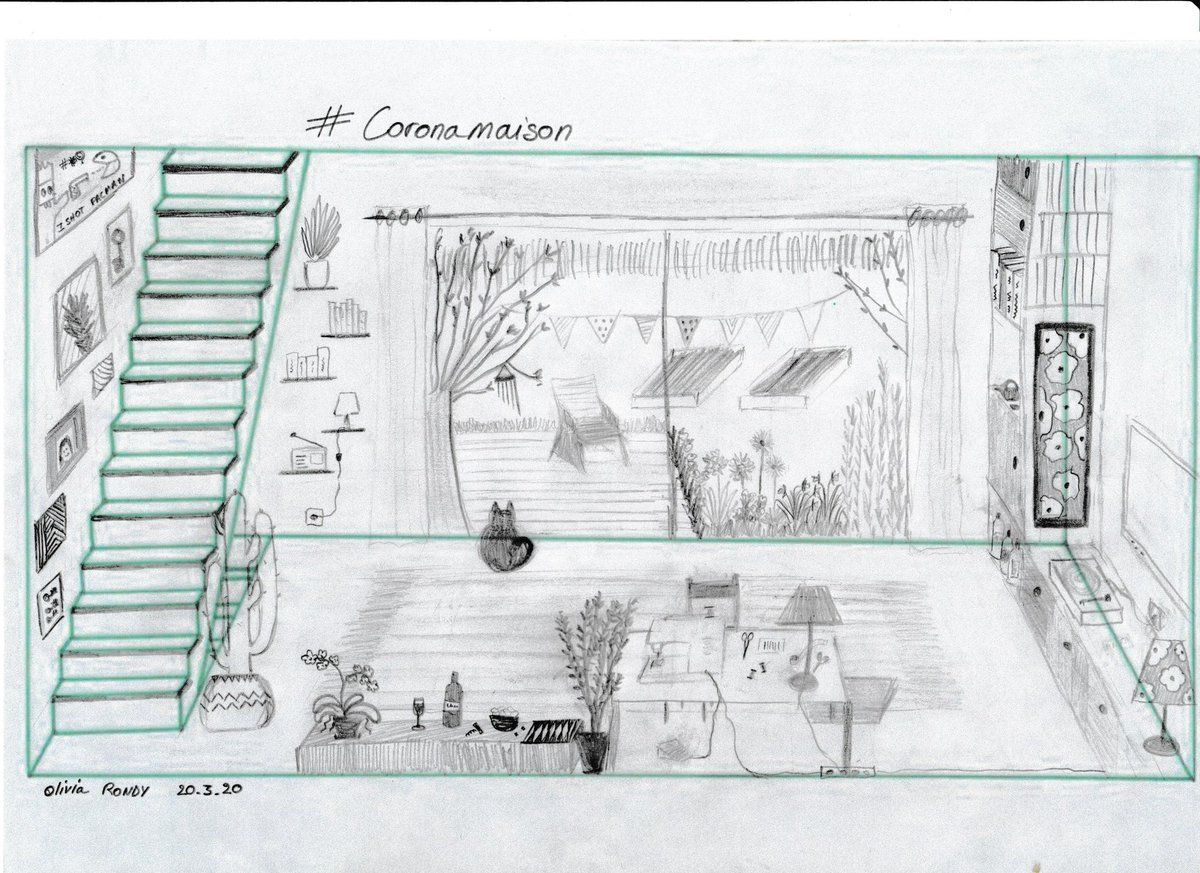 # Coronamaison
I SHOT PACMAN
Olivia RONDY 20.3.20